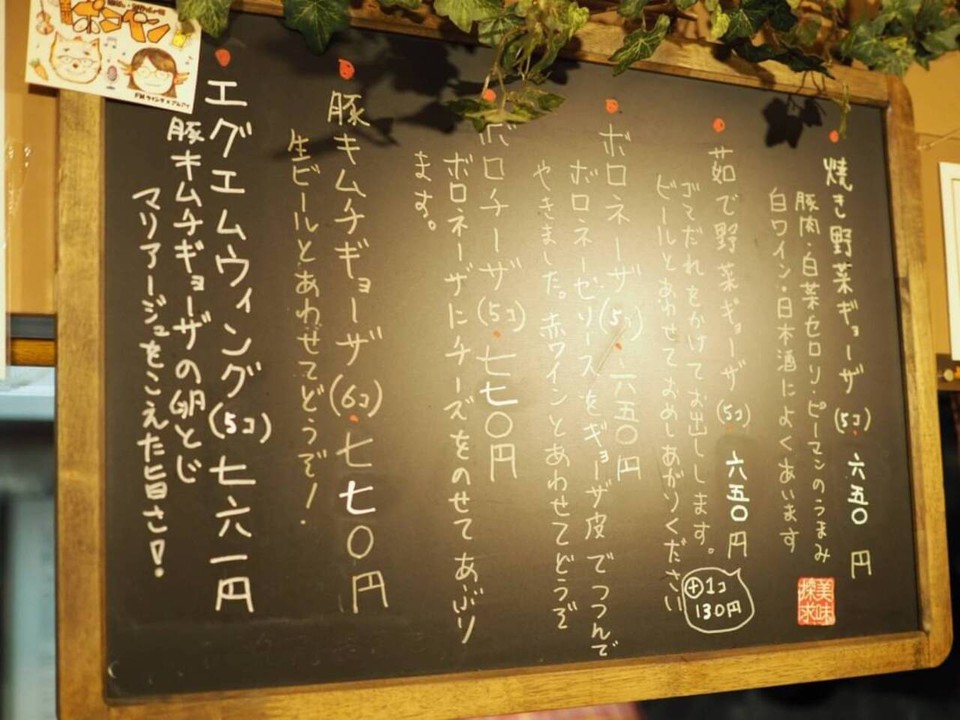 焼き野菜ギョーザ(5コ)六五〇円
豚肉・白菜セロリ・ピーマンのうまみ
白ワイン・日本酒によくあいます
美味
探求
茹で野菜ギョーザ(5コ)六五〇円
ゴマだれをかけてお出しします。
ビールとあわせておめしあがりください
⊕1コ
130円
ボロネーザ(5コ)・六五〇円
ボロネーゼソースをギョーザ皮でつつんで
やきました。赤ワインとあわせてどうぞ
ボロチーザ(5コ)・七七〇円
ボロネーザにチーズをのせてあぶり
ます。
豚キムチギョーザ(6コ)・七七〇円
生ビールとあわせてどうぞ!
エグエムウィング(5コ)七六一円
豚キムチギョーザの卵とじ
マリアージュをこえた旨さ!